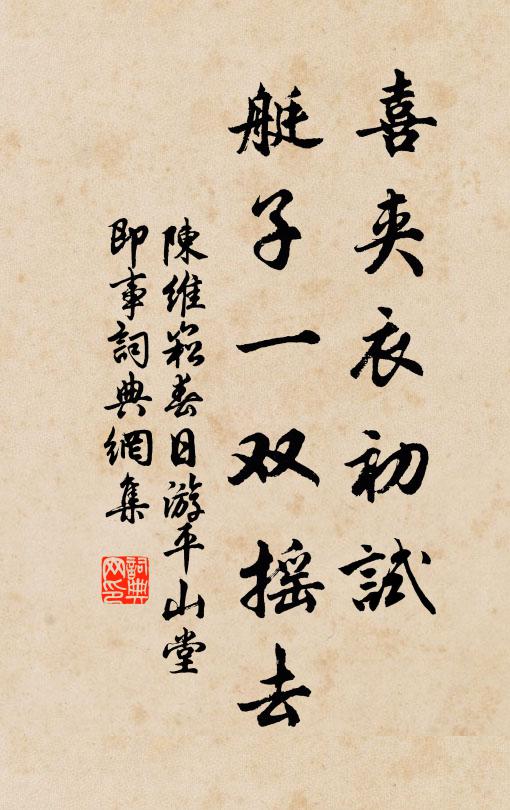 喜夹衣初試
艇子一双摇去
陳維崧春日游平山堂
即事詞典網集
詞典网印